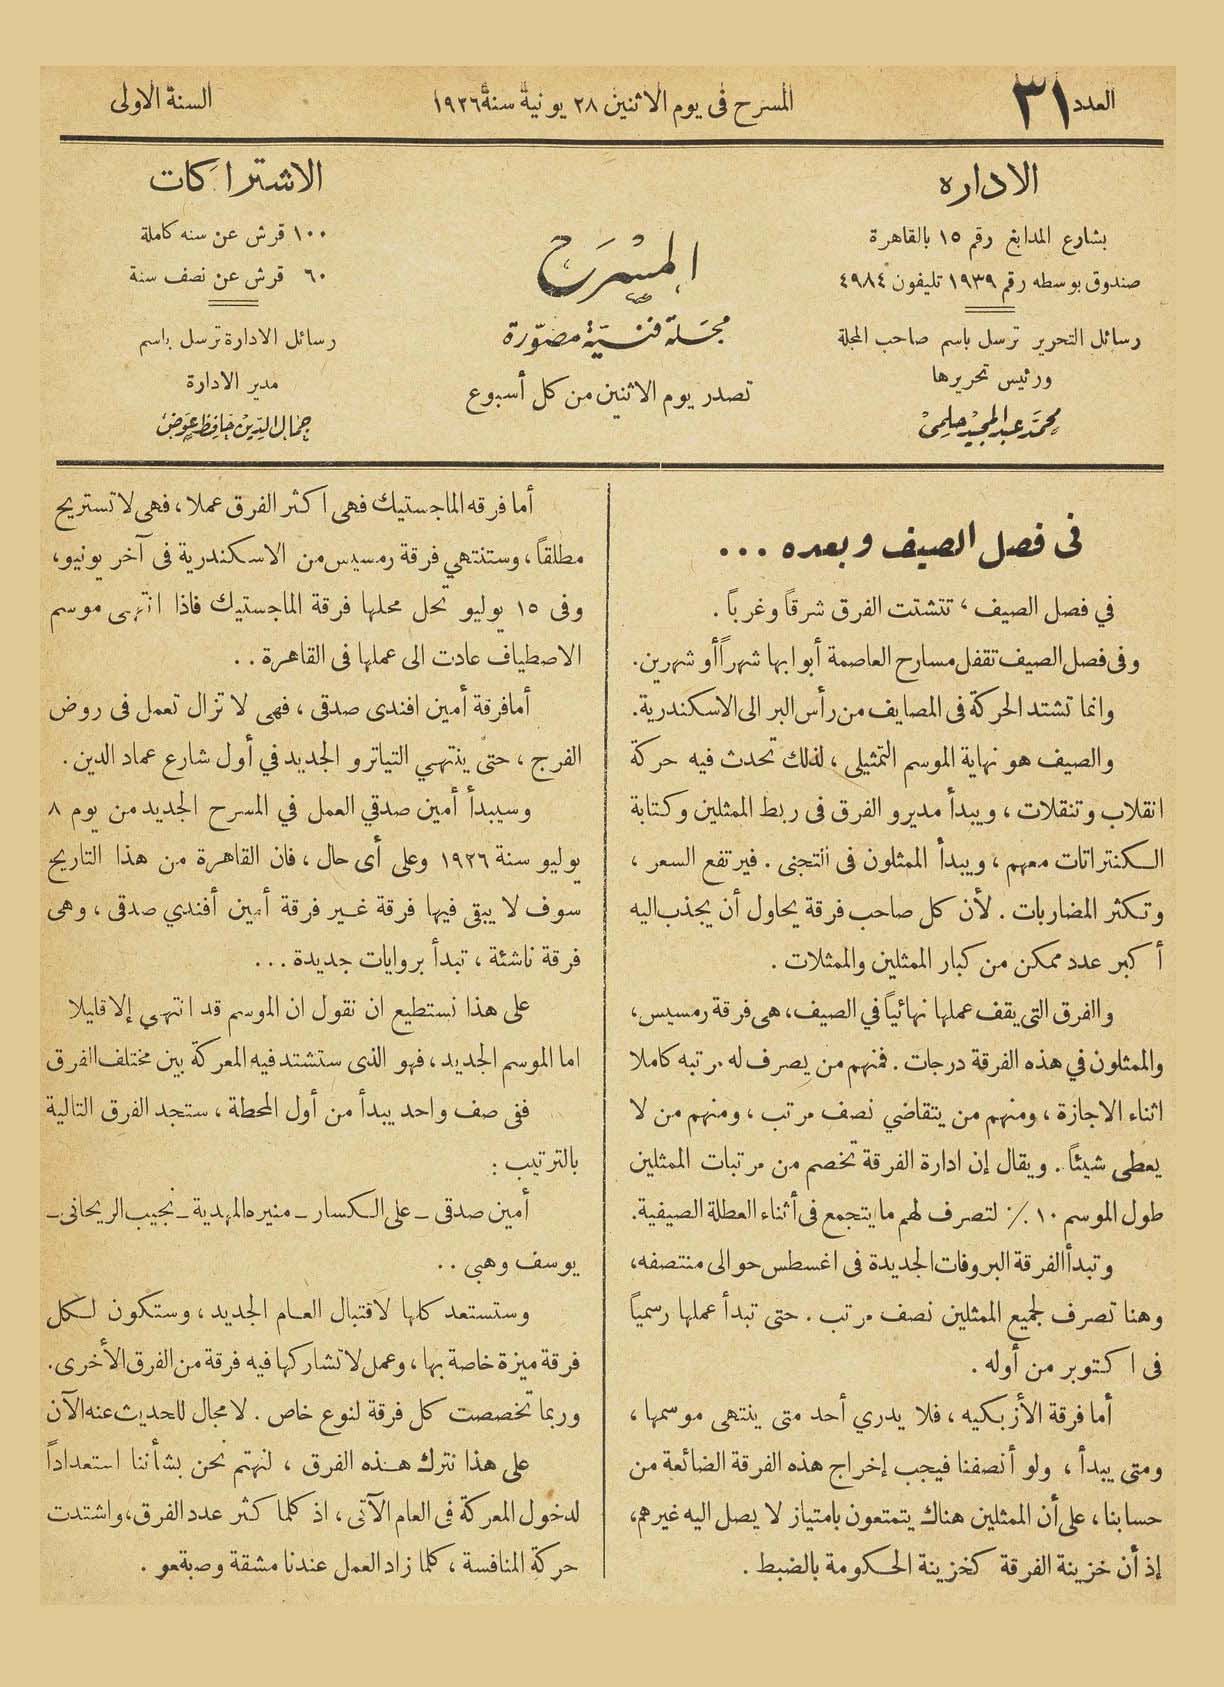 العدد ٣١
المسرح فى يوم الاثنين ٢٨ يونية سنة ١٩٢٦
السنة الاولى
الاداره
بشارع المدابغ رقم ١٥ بالقاهرة
صندوق بوسطه رقم ١٩٣٩ تليفون ٤٩٨٤
رسائل التحرير ترسل باسم صاحب المجلة
ورئيس تحريرها
محمد عبد المجيد حلمى
المسرح
مجلة فنية مصورة
تصدر يوم الاثنين من كل أسبوع
الاشتراكات
١٠٠ قرش عن سنه كاملة
٦٠ قرش عن نصف سنة
رسائل الادارة ترسل باسم
مدير الادارة
جمال الدين حافظ عوض
فى فصل الصيف وبعده ...
في فصل الصيف ، تتشتت الفرق شرقاً وغرباً .
وفى فصل الصيف تقفل مسارح العاصمة أبوابها شهراً أو شهرين.
وانما تشتد الحركة فى المصايف من رأس البر الى الاسكندرية.
والصيف هو نهاية الموسم التمثيلى ، لذلك تحدث فيه حركة
انقلاب وتنقلات ، ويبدأ مديرو الفرق فى ربط الممثلين وكتابة
الكنتراتات معهم ، ويبدأ الممثلون فى التجنى . فيرتفع السعر ،
وتكثر المضاربات . لأن كل صاحب فرقة يحاول أن يجذب اليه
أكبر عدد ممكن من كبار الممثلين والممثلات .
والفرق التى يقف عملها نهائياً في الصيف، هى فرقة رمسيس،
والممثلون في هذه الفرقة درجات . فمنهم من يصرف له مرتبه كاملا
اثناء الاجازة ، ومنهم من يتقاضي نصف مرتب ، ومنهم من لا
يعطى شيئاً . ويقال إن ادارة الفرقة تخصم من مرتبات الممثلين
طول الموسم ١٠ ٪ لتصرف لهم ما يتجمع فى أثناء العطلة الصيفية.
وتبدأ الفرقة البروفات الجديدة فى اغسطس حوالى منتصفه،
وهنا تصرف لجميع الممثلين نصف مرتب . حتى تبدأ عملها رسمياً
فى اكتوبر من أوله .
أما فرقة الأزبكيه ، فلا يدري أحد متى ينتهى موسمها ،
ومتى يبدأ ، ولو أنصفنا فيجب إخراج هذه الفرقة الضائعة من
حسابنا ، على أن الممثلين هناك يتمتعون بامتياز لا يصل اليه غيرهم،
إذ أن خزينة الفرقة كخزينة الحكومة بالضبط .
أما فرقه الماجستيك فهى اكثر الفرق عملا ، فهى لا تستريح
مطلقاً ، وستنتهي فرقة رمسيس من الاسكندرية فى آخر يونيو،
وفى ١٥ يوليو تحل محلها فرقة الماجستيك فاذا انتهى موسم
الاصطياف عادت الى عملها فى القاهرة . .
أما فرقة أمين افندى صدقى ، فهى لا تزال تعمل فى روض
الفرج ، حتى ينتهي التياترو الجديد في أول شارع عماد الدين .
وسيبدأ أمين صدقي العمل في المسرح الجديد من يوم ٨
يوليو سنة ١٩٢٦ وعلى أى حال ، فان القاهرة من هذا التاريخ
سوف لا يبقى فيها فرقة غير فرقة أمين أفندي صدقى ، وهى
فرقة ناشئة ، تبدأ بروايات جديدة ...
على هذا نستطيع ان نقول ان الموسم قد انتهي إلا قليلا
اما الموسم الجديد ، فهو الذى ستشتد فيه المعركة بين مختلف الفرق
ففى صف واحد يبدأ من أول المحطة ، ستجد الفرق التالية
بالترتيب :
أمين صدقى ـ على الكسار ـ منيره المهدية ـ نجيب الريحانى ـ
يوسف وهبى . .
وستستعد كلها لاقتبال العام الجديد ، وستكون لكل
فرقة ميزة خاصة بها ، وعمل لا تشاركها فيه فرقة من الفرق الأخرى.
وربما تخصصت كل فرقة لنوع خاص . لا مجال للحديث عنه الآن
على هذا نترك هذه الفرق ، لنهتم نحن بشأننا استعداداً
لدخول المعركة فى العام الآتى ، اذ كلما كثر عدد الفرق، واشتدت
حركة المنافسة ، كلما زاد العمل عندنا مشقة وصبةعو .